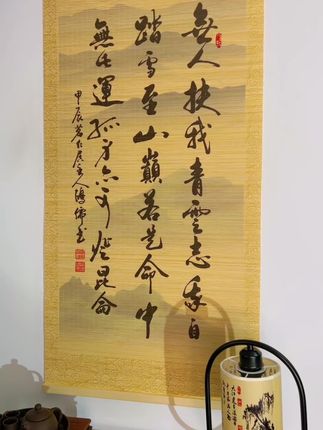 無人扶我青雲志我自
踏雪至山巔若是命中
無此運孤身亦可燈昆侖
甲辰
書
大江東去浪淘